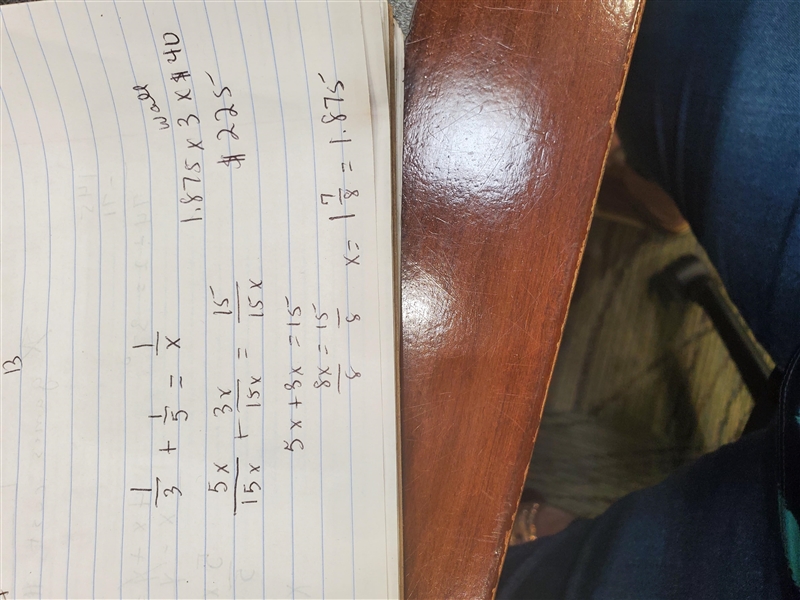 13
1/3 + 1/5 = 1/x
5x/15x + 3x/15x = 15/15x
5x + 3x = 15
8x = 15
8 8
x = 1 7/8 = 1.875
walls
1.875 x 3 x $40
$225